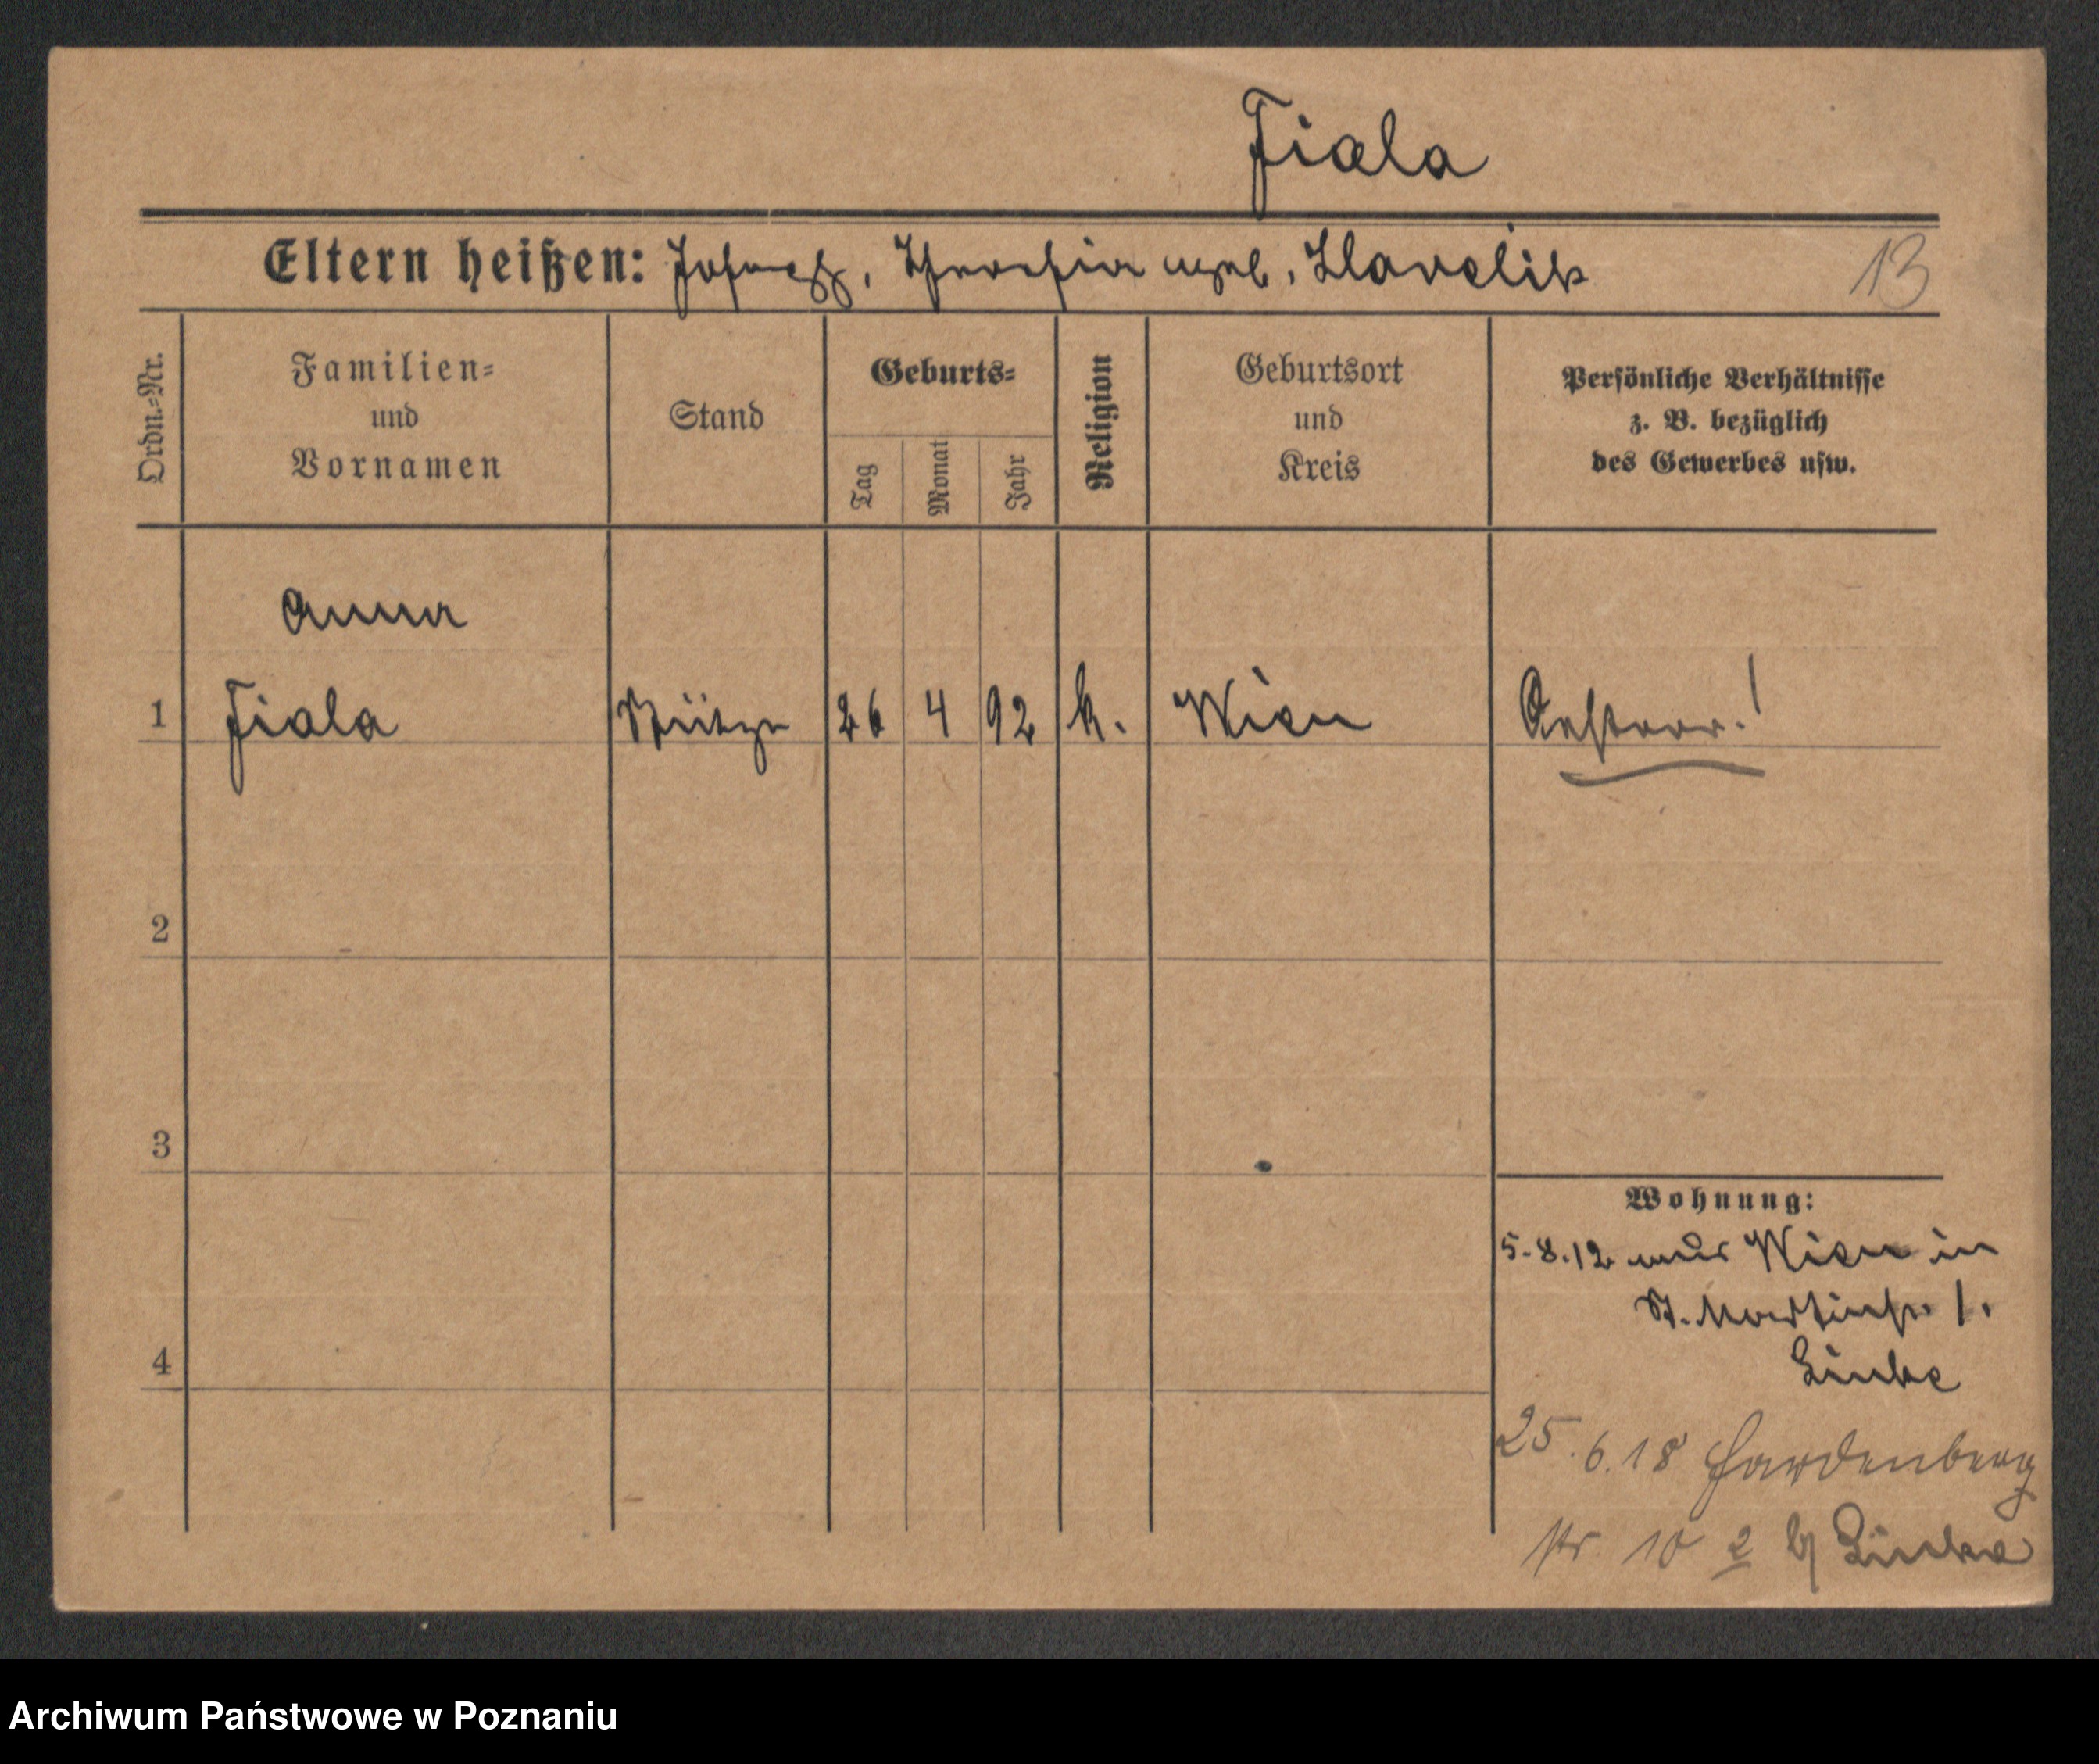 Fiala
Eltern heißen: Joseph, Theresia geb. Havelik
13
Ordn.-Nr.
Familien-
und
Vornamen
Stand
Geburts-
Tag
Monat
Jahr
Religion
Geburtsort
und
Kreis
Persönliche Verhältnisse
z. B. bezüglich
des Gewerbes usw.
Anna
1 Fiala Stütze 26 4 92 k. Wien Oesterr.!
2
3
4
Wohnung:
5.8.12 aus Wien in
St. Martinstr. 1.
Linke
25.6.18 Hardenberg
str. 10 2 b/ Linke
Archiwum Państwowe w Poznaniu